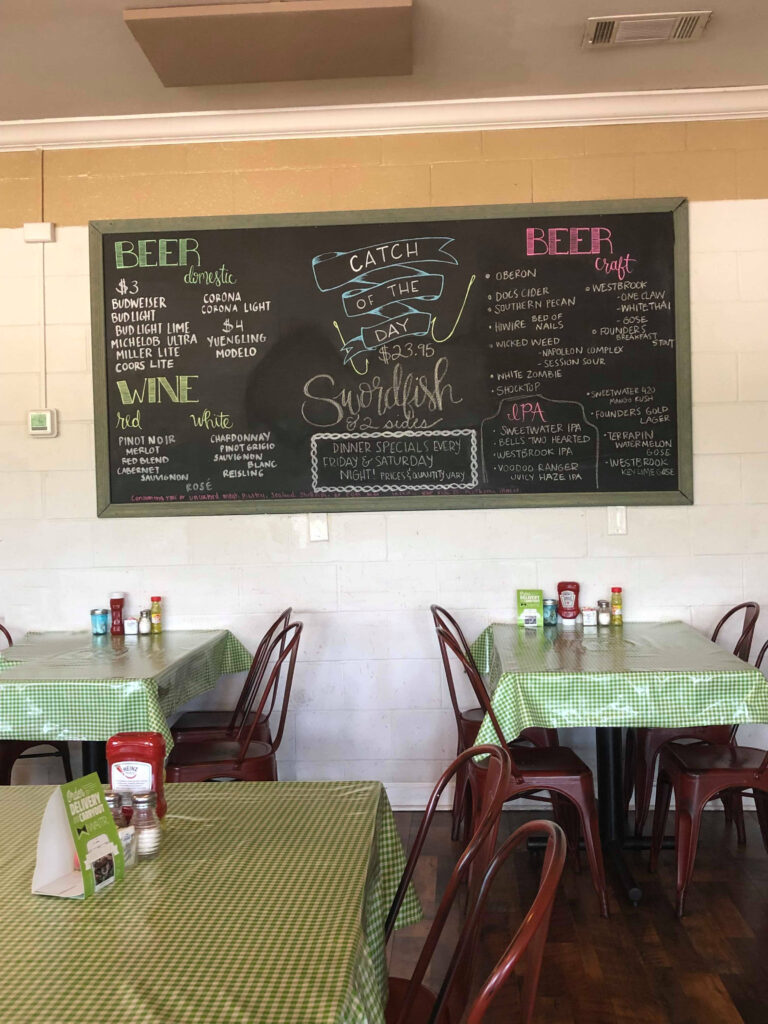 BEER
domestic
$3
BUDWEISER
BUD LIGHT
BUD LIGHT LIME
MICHELOB ULTRA
MILLER LITE
COORS LITE
CORONA
CORONA LIGHT
$4
YUENGLING
MODELO
WINE
red
PINOT NOIR
MERLOT
RED BLEND
CABERNET
SAUVIGNON
white
CHARDONNAY
PINOT GRIGIO
SAUVIGNON
BLANC
REISLING
ROSÉ
CATCH
OF THE
DAY
$23.95
Swordfish
& 2 sides
DINNER SPECIALS EVERY
FRIDAY & SATURDAY
NIGHT! PRICES & QUANTITY VARY
BEER
craft
OBERON
DOCS CIDER
SOUTHERN PECAN
HIWIRE BED OF
NAILS
WICKED WEED
-NAPOLEON COMPLEX
-SESSION SOUR
WHITE ZOMBIE
SHOCKTOP
WESTBROOK
-ONE CLAW
-WHITE THAI
GOSE
FOUNDERS
BREAKFAST
STOUT
SWEETWATER 420
MANGO KUSH
FOUNDERS GOLD
LAGER
TERRAPIN
WATERMELON
GOSE
WESTBROOK
KEY LIME GOSE
IPA
SWEETWATER IPA
BELLS TWO HEARTED
WESTBROOK IPA
VOODOO RANGER
JUICY HAZE IPA
Consuming raw or undercooked meat, Poultry, Seafood,
Order
DELIVERY
HEINZ
DELIVERY